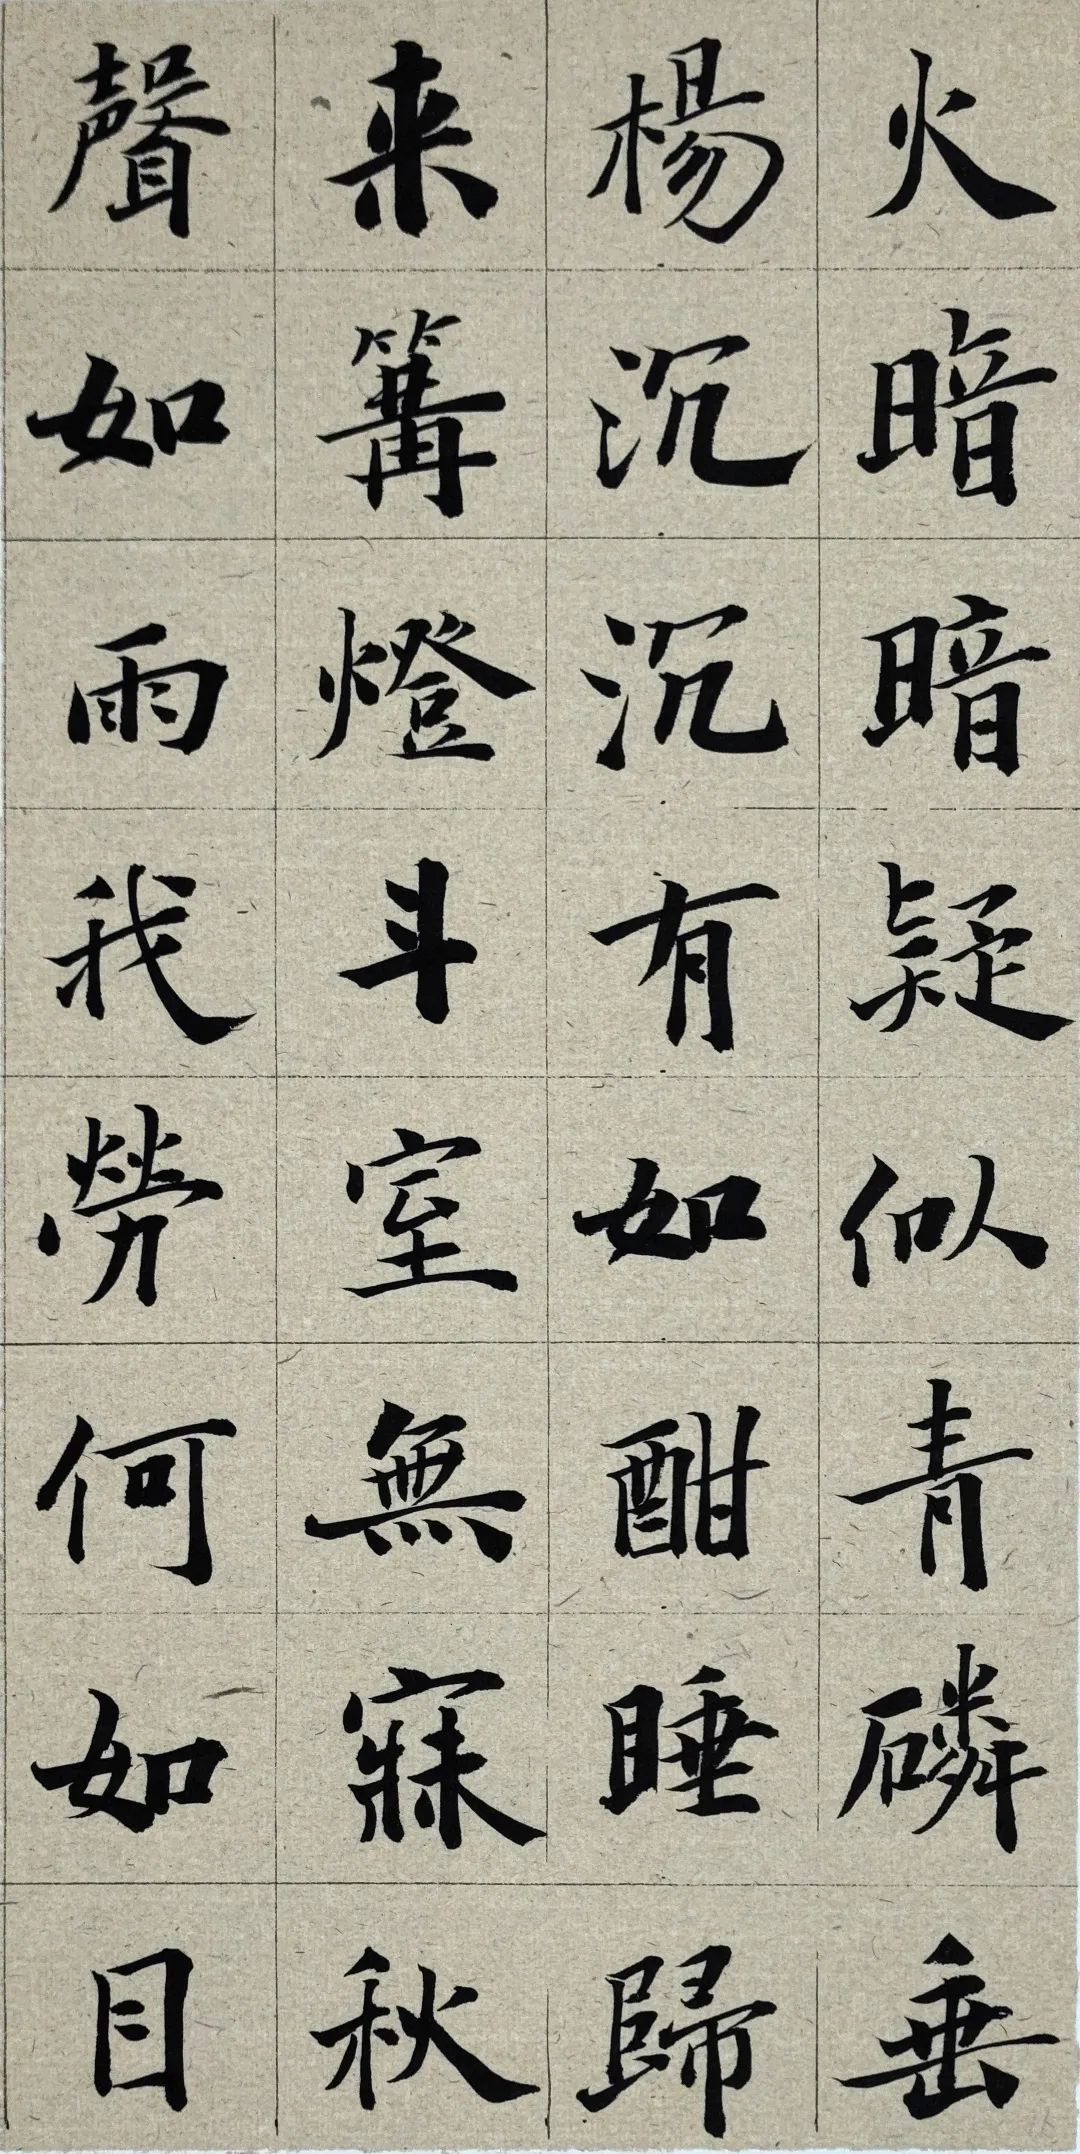 火暗暗疑似青磷垂
楊沉沉有如酣睡歸
来篝燈斗室無寐秋
聲如雨我勞何如目